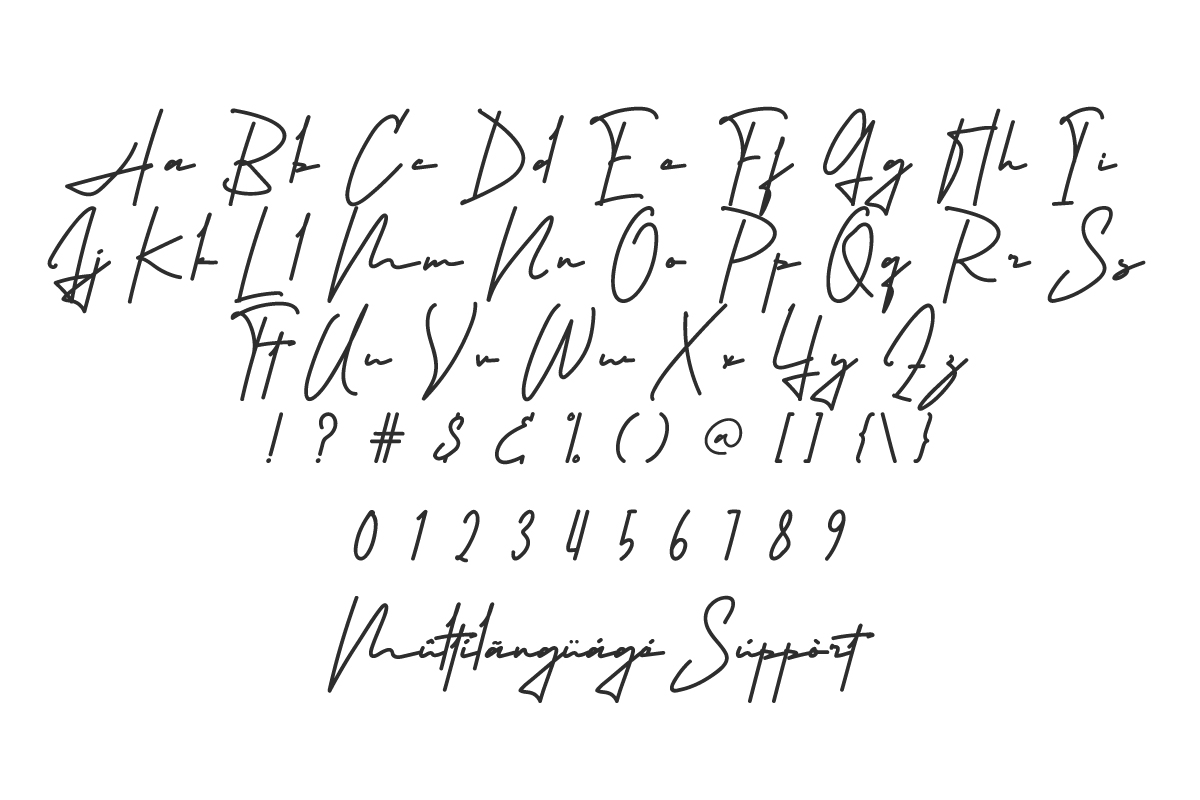 Aa Bb Cc Dd Ee Ff Gg Hh Ii
Jj Kk Ll Mm Nn Oo Pp Qq Rr Ss
Tt Uu Vv Ww Xx Yy Zz
! ? # $ & % ( ) @ [ ] { \ }
0 1 2 3 4 5 6 7 8 9
Mûltilãngüágé Súppòrt